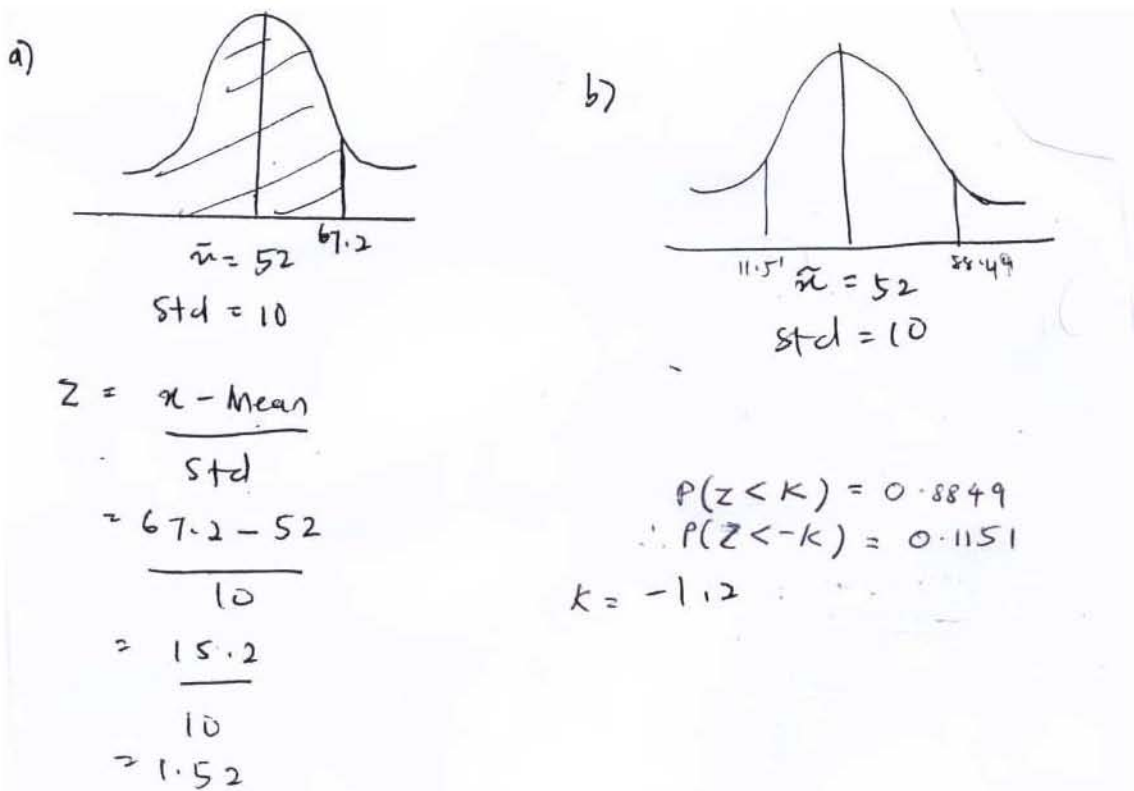 a)
67.2
x̄ = 52
Std = 10
Z = x - Mean
Std
= 67.2 - 52
10
= 15.2
10
= 1.52
b)
11.51 88.49
x̄ = 52
std = 10
P(Z < K) = 0.8849
∴ P(Z < -K) = 0.1151
K = -1.2